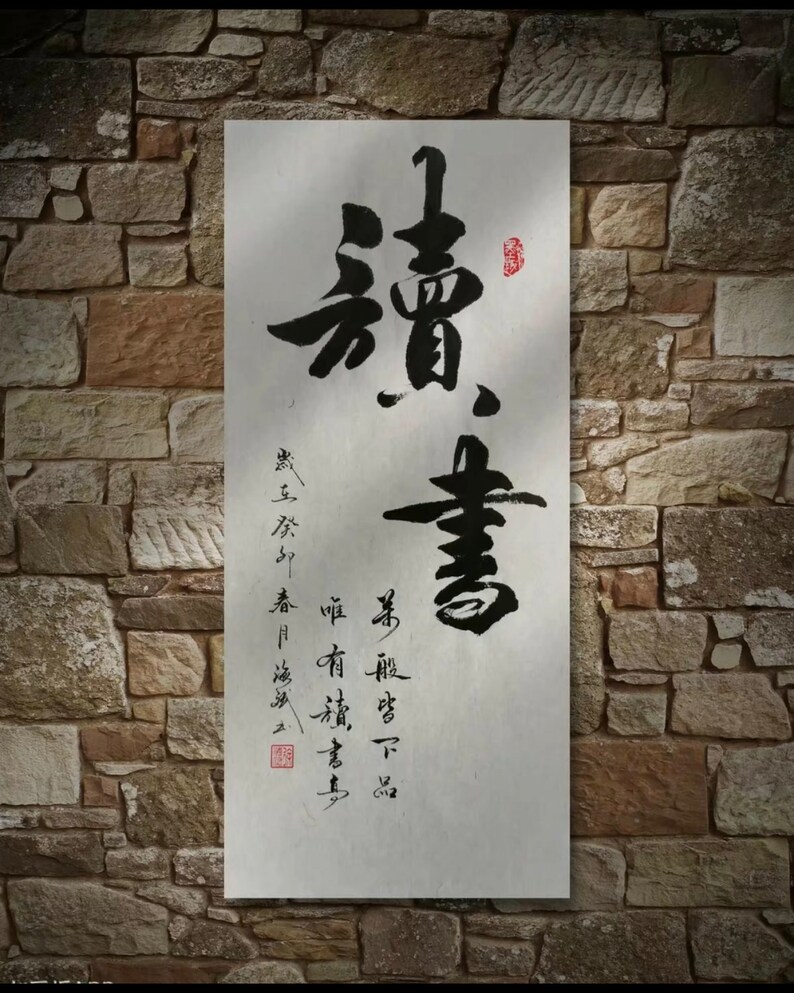 讀書
萬般皆下品
唯有讀書高
歲在癸卯春月海斌書